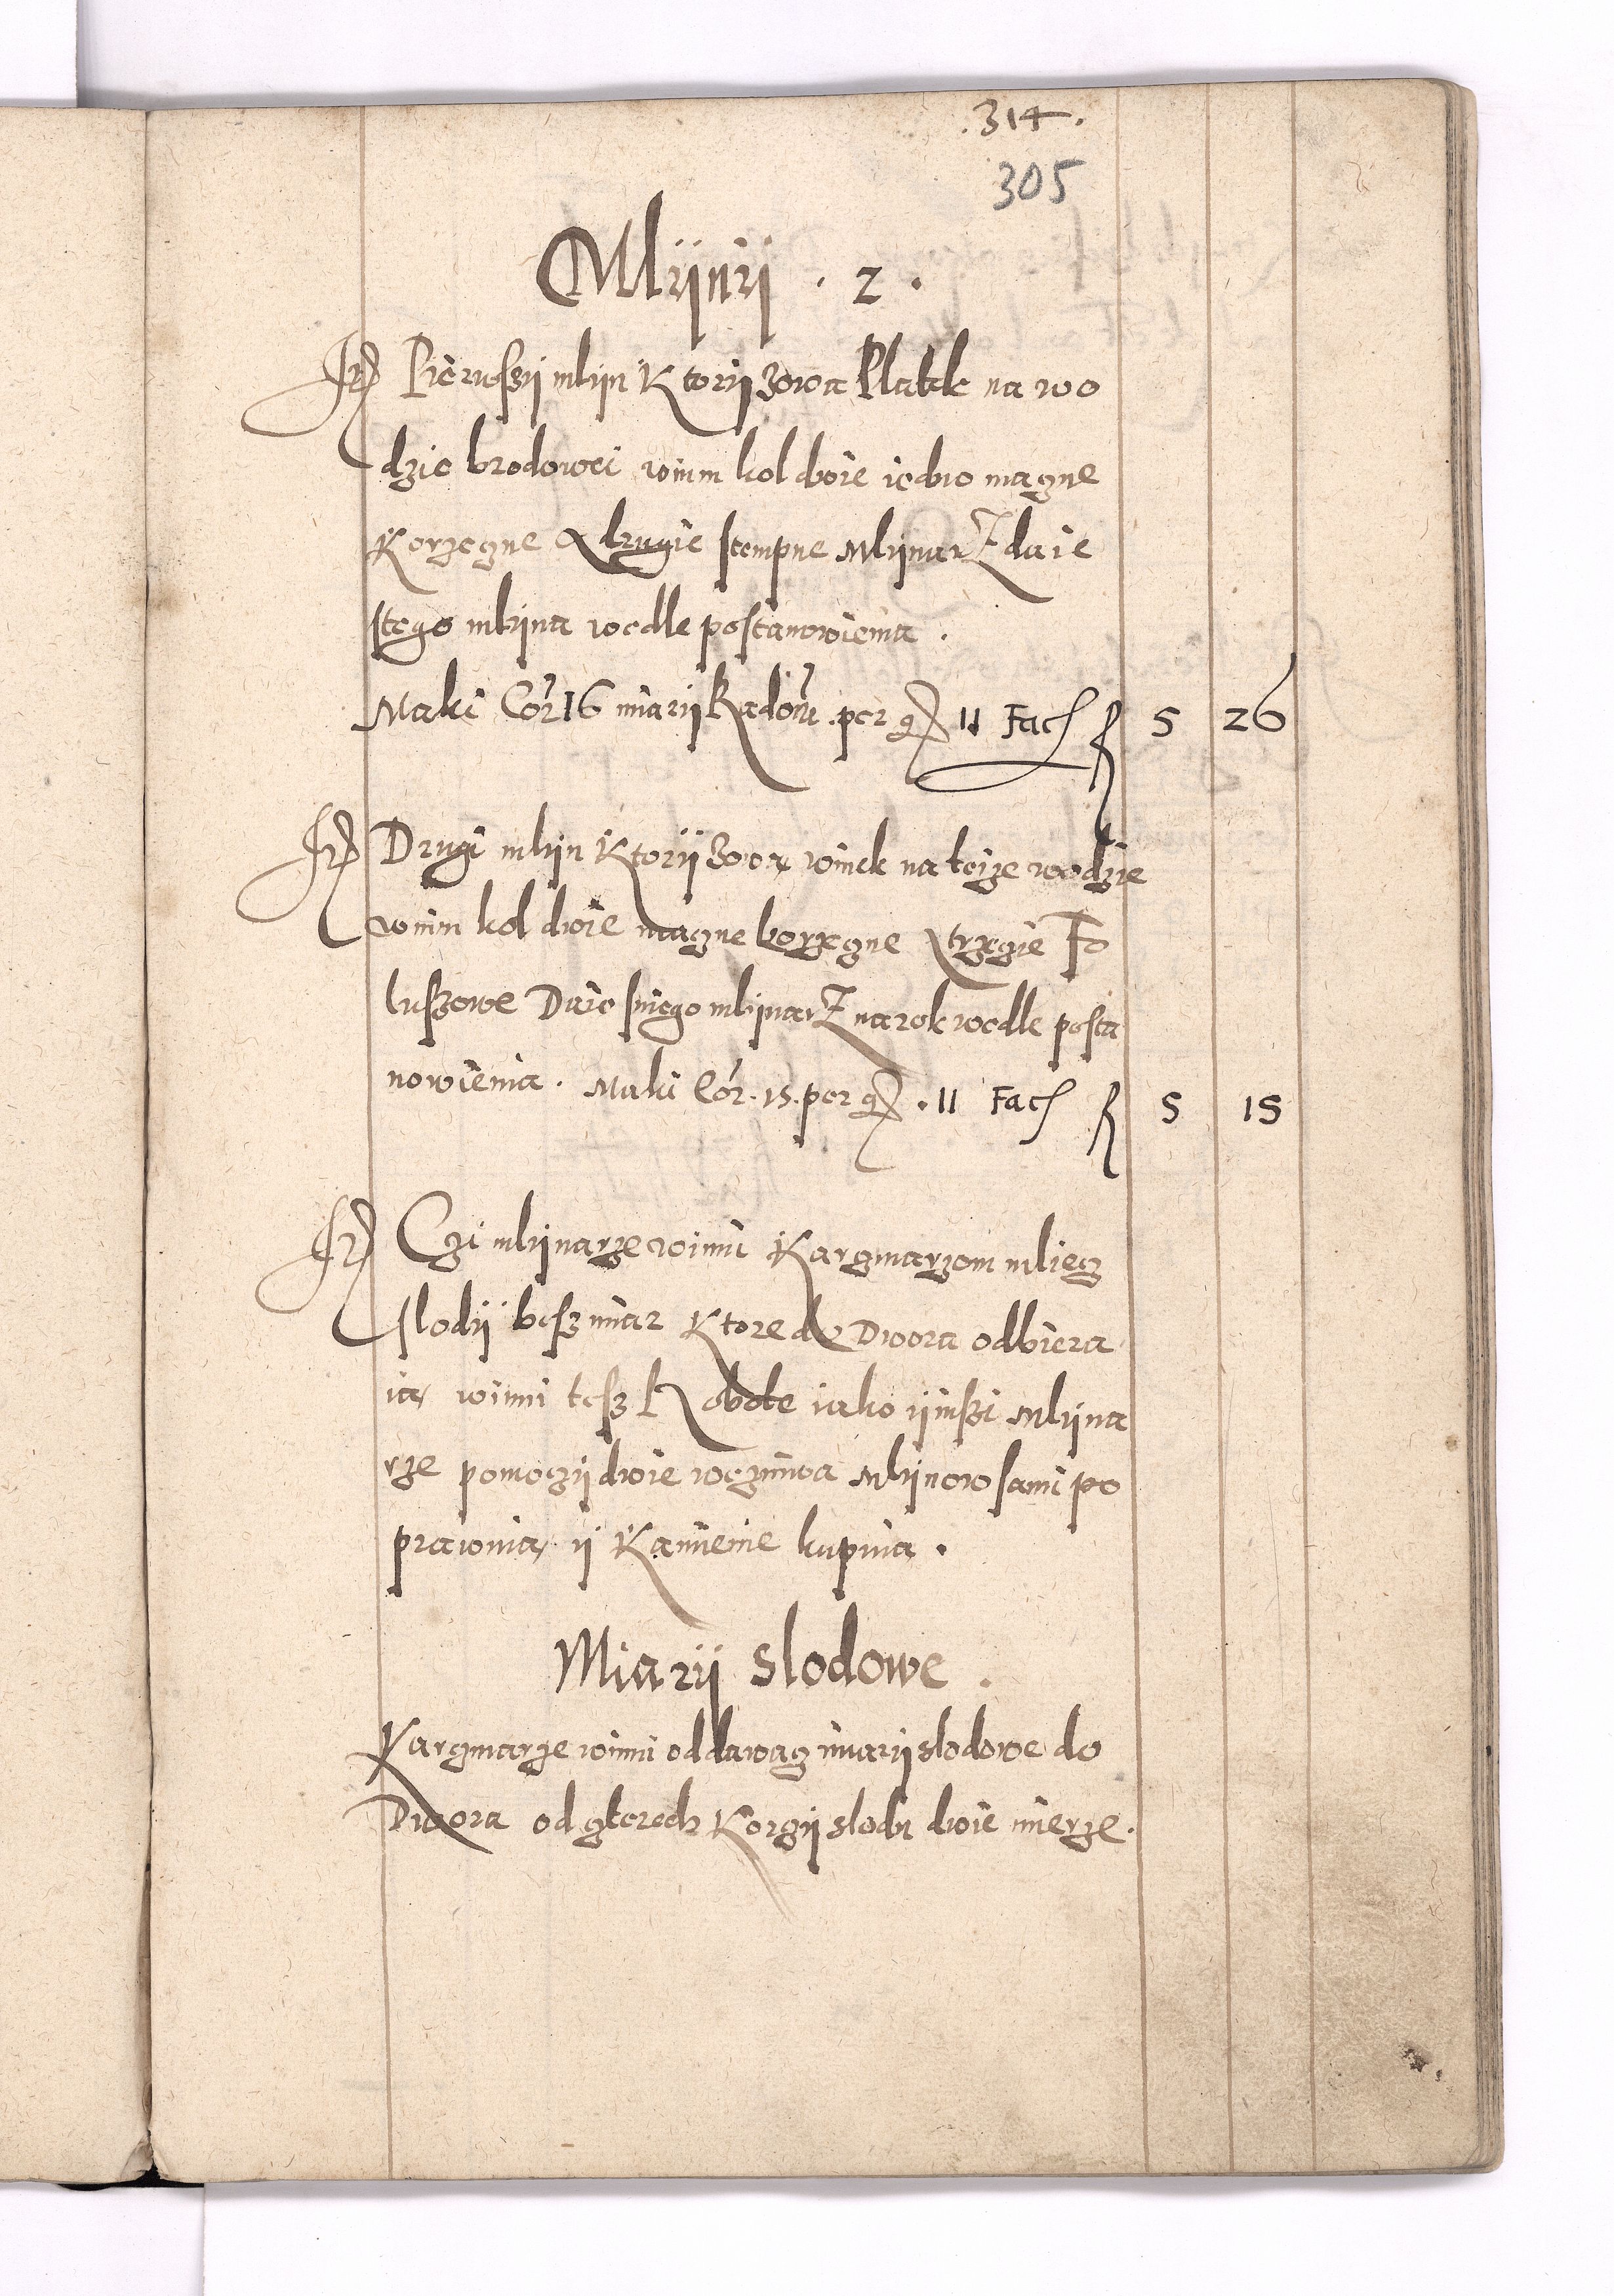 .314.
305
Mlÿnÿ . 2 .
It Pierwszÿ mlÿn Ktorÿ zowa Platek na wo
dzie brodowei wnim kol dwie iedno mączne
Korzeczne a drugie stempne Mlÿnarz daie
stego mlÿna wedle postanowienia .
Maki Cor 16 miarÿ Radom . per g 11 Fac f 5 26
It Drugi mlÿn Ktorÿ zowa winek na teize wodzie
wnim kol dwie mączne korzeczne a trzecie Fo
luszowe Daie sniego mlÿnarz na rok wedle posta
nowienia . Maki Cor . 15 . per g . 11 Fac f 5 15
It Czi mlÿnarze winni Karczmarzom mliecz
slodÿ besz miar Ktore do Dwora odbiera
ia winni tesz Robote iako ÿinszi Mlÿna
rze pomoczÿ dwie wezniwa Mlÿnow sami po
prawuia ÿ Kamienie kupuia .
Miarÿ slodowe .
Karczmarze winni oddawacz miarÿ slodowe do
Dwora od czterech Korczÿ slodu dwie mierze .